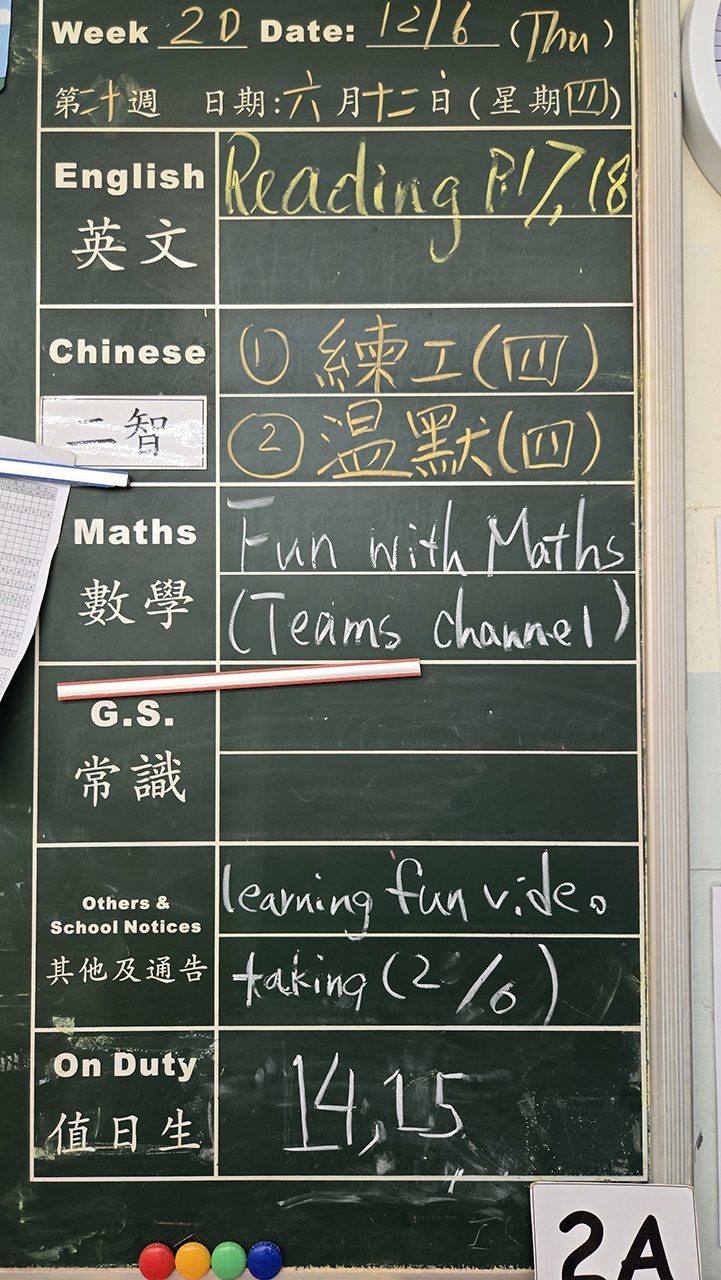 Week 20 Date: 12/6 (Thu)
第二十週 日期:六月十二日(星期四)
English Reading P.17,18
英文
Chinese ① 練工(四)
二智 ② 溫默(四)
Maths Fun with Maths
數學 (Teams channel)
G.S.
常識
Others & School Notices learning fun video
其他及通告 taking (2/6)
On Duty 14,15
值日生
2A